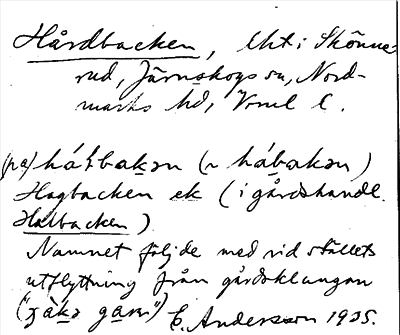 Hårdbacken, lht i Skönne-
rud, Järnskogs sn, Nord-
marks hd, Vrml l.
(pa) hákbakən (~ hábakən)
Hagbacken ek (i gårdshandl.
Halbacken)
Namnet följde med vid ställets
utflyttning från gårdsklungan
E. Andersson 1935.